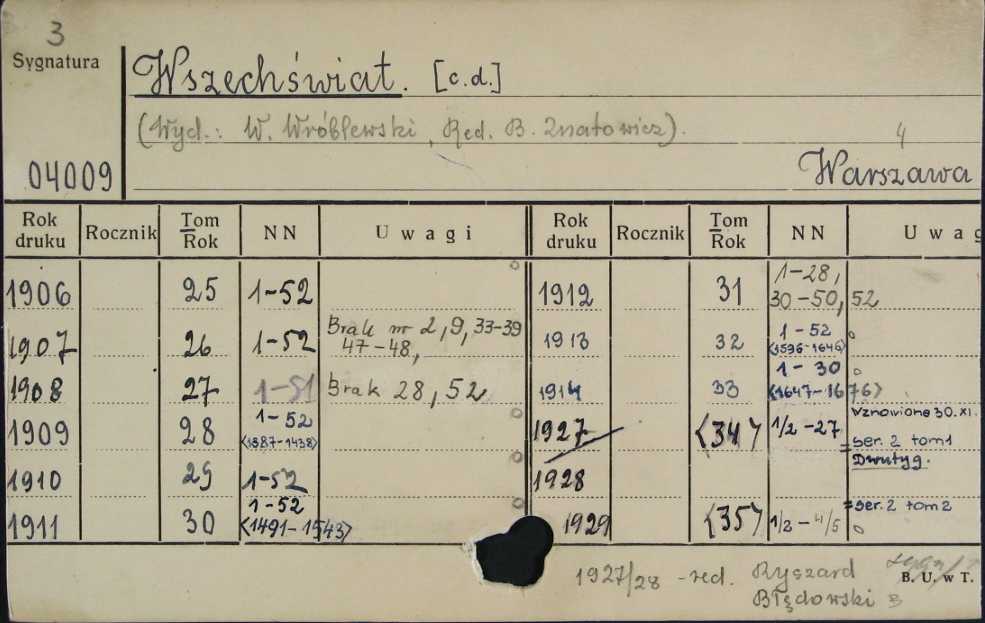 3
Sygnatura
Wszechświat. [c.d.]
(Wyd.: W. Wróblewski, Red. B. Znatowicz).
4
04009
Warszawa
Rok druku Rocznik Tom Rok NN Uwagi Rok druku Rocznik Tom Rok NN Uwag
1906 25 1-52 1912 31 1-28, 30-50, 52
1907 26 1-52 Brak nr 2, 9, 33-39 47-48, 1913 32 1-52 <1596-1646>
1908 27 1-51 Brak 28, 52 1914 33 1-30 <1647-1676>
1909 28 1-52 <1387-1438> 1927 <34> 1/2-27 Wznowione 30.XI. = ser. 2 tom 1 Dwutyg.
1910 29 1-52 1928
1911 30 1-52 <1491-1543> 1929 <35> 1/2-4/5 = ser. 2 tom 2
1927/28 - red. Ryszard
Błędowski
B. U. w T.